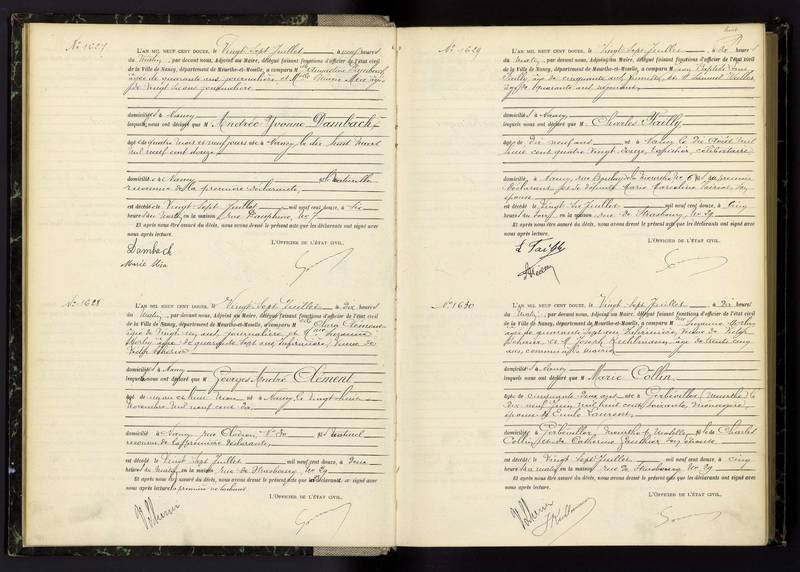 N° 1627
L'AN MIL NEUF CENT DOUZE, le Vingt Sept Juillet à neuf heures
du Matin, par devant nous, Adjoint au Maire, délégué faisant fonctions d'officier de l'état civil
de la Ville de Nancy, département de Meurthe-et-Moselle, a comparu M Augustine Dambach
âgée de quarante ans journalière et Melle Marie âgée
de vingt ans journalière
domiciliés à Nancy
lesquels nous ont déclaré que M Andrée Yvonne Dambach
âgée de quatre mois et neuf jours née à Nancy le dix huit Mars
mil neuf cent douze
domiciliée à Nancy
reconnue de la première déclarante
est décédée le Vingt Sept Juillet mil neuf cent douze, à six
heures du matin, en la maison rue Dauphine, No 7
Et après nous être assuré du décès, nous avons dressé le présent acte que les déclarants ont signé avec
nous après lecture.
L'OFFICIER DE L'ÉTAT CIVIL.
Dambach
N° 1628
L'AN MIL NEUF CENT DOUZE, le Vingt Sept Juillet à Dix heures
du Matin, par devant nous, Adjoint au Maire, délégué faisant fonctions d'officier de l'état civil
de la Ville de Nancy, département de Meurthe-et-Moselle, a comparu M Clément
âgée de vingt un ans journalière et Suzanne
Morly âgée de quarante sept ans infirmière, Veuve de
domiciliés à Nancy
lesquels nous ont déclaré que M Georges André Clément
âgé de un an et huit mois né à Nancy le vingt
novembre mil neuf cent dix
domicilié à Nancy, rue No 30 fils naturel
reconnu de la première déclarante
est décédé le Vingt Sept Juillet mil neuf cent douze, à Deux
heures du matin, en la maison rue de Strasbourg, No 29
Et après nous être assuré du décès, nous avons dressé le présent acte que les déclarants ont signé avec
nous après lecture
L'OFFICIER DE L'ÉTAT CIVIL.
N° 1629
L'AN MIL NEUF CENT DOUZE, le Vingt Sept Juillet à Dix heures
du Matin, par devant nous, Adjoint au Maire, délégué faisant fonctions d'officier de l'état civil
de la Ville de Nancy, département de Meurthe-et-Moselle, a comparu M Baptiste
Failly, âgé de cinquante ans et M
âgé de quarante ans
domiciliés à Nancy
lesquels nous ont déclaré que M Charles Failly
âgé de dix neuf ans né à Nancy le Dix Août mil
huit cent quatre vingt douze, célibataire
domicilié à Nancy, rue No 6 fils du premier
déclarant et de Marie son
épouse
est décédé le Vingt Six Juillet mil neuf cent douze, à cinq
heures du soir, en la maison rue de Strasbourg, No 29
Et après nous être assuré du décès, nous avons dressé le présent acte que les déclarants ont signé avec
nous après lecture.
L'OFFICIER DE L'ÉTAT CIVIL.
N° 1630
L'AN MIL NEUF CENT DOUZE, le Vingt Sept Juillet à Dix heures
du Matin, par devant nous, Adjoint au Maire, délégué faisant fonctions d'officier de l'état civil
de la Ville de Nancy, département de Meurthe-et-Moselle, a comparu M Suzanne Morly
âgée de quarante sept ans infirmière, Veuve de
et M Joseph âgé de trente cinq
ans,
domiciliés à Nancy
lesquels nous ont déclaré que M Marie Collin
âgée de cinquante deux ans née à Gerbéviller (Meurthe) le
dix neuf mil huit cent soixante, ménagère,
épouse de Emile Laurent
domiciliée à Gerbéviller, Meurthe et Moselle fille de Charles
Collin et de Catherine Gauthier son épouse
est décédée le Vingt Sept Juillet mil neuf cent douze, à cinq
heures du matin, en la maison rue de Strasbourg No 29
Et après nous être assuré du décès, nous avons dressé le présent acte que les déclarants ont signé avec
nous après lecture.
L'OFFICIER DE L'ÉTAT CIVIL.